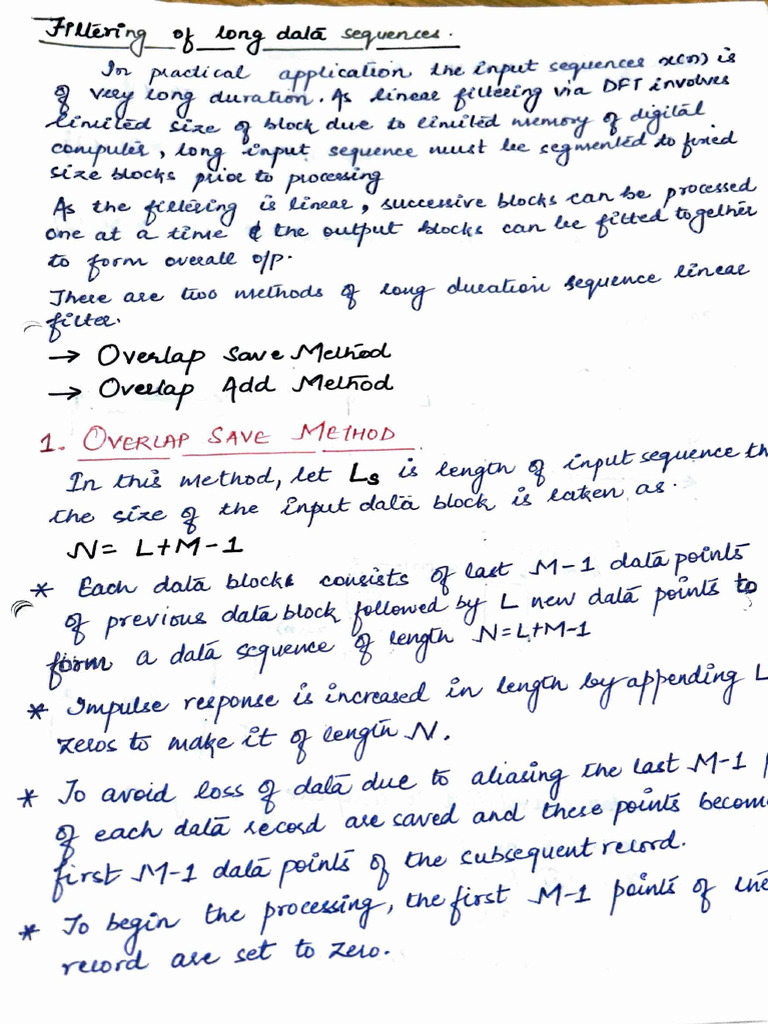 Filtering of long data sequences.
In practical application the input sequences x(n) is
of very long duration. As linear filtering via DFT involves
limited size of block due to limited memory of digital
computer, long input sequence must be segmented to fixed
size blocks prior to processing
As the filtering is linear, successive blocks can be processed
one at a time & the output blocks can be fitted together
to form overall o/p.
There are two methods of long duration sequence linear
filter.
→ Overlap Save Method
→ Overlap Add Method
1. OVERLAP SAVE METHOD
In this method, let Ls is length of input sequence th
the size of the input data block is taken as.
N= L+M-1
* Each data blocks consists of last M-1 data points
of previous data block followed by L new data points to
form a data sequence of length N=L+M-1
* Impulse response is increased in length by appending L
zeros to make it of length N.
* To avoid loss of data due to aliasing the last M-1
of each data record are saved and these points become
first M-1 data points of the subsequent record.
* To begin the processing, the first M-1 points of the
record are set to zero.